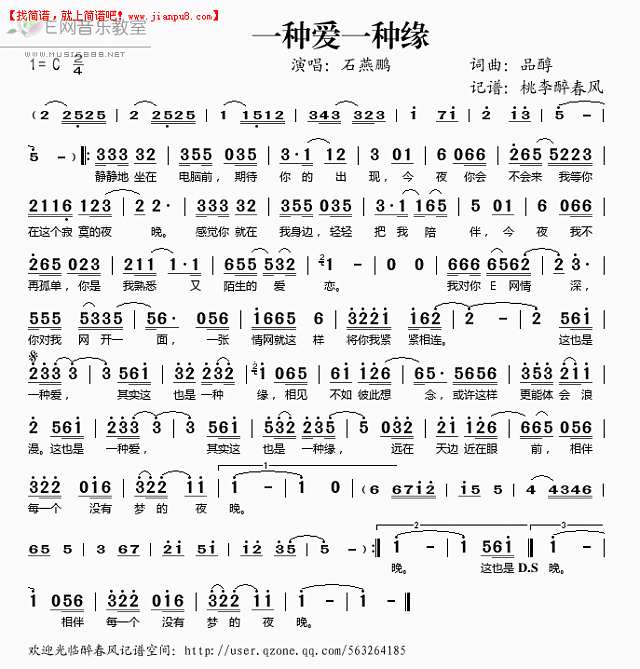 【找简谱，就上简谱吧！www.jianpu8.com】
E网音乐教室
WWW.MUSICEBBS.NET
一种爱一种缘
1= C 2/4
演唱：石燕鹏
词曲：品醇
记谱：桃李醉春风
(2 2525 | 2 2525 | 1 1512 | 343 323 | i 7i | 2 i3 | 5
5 -) ‖: 333 32 | 355 035 | 3·1 12 | 3 01 | 6 066 | 265 5223 |
静静地 坐在 电脑前，期待 你 的 出 现，今 夜 你会 不会来 我等你
2116 123 | 2 2· | 333 32 | 355 035 | 3·1 165 | 5 01 | 6 066 |
在这个寂 寞的夜 晚。 感觉你 就在 我身边，轻轻 把 我 陪 伴，今 夜 我不
265 023 | 211 1·1 | 655 532 | 1 - | 1 0 | 666 6562 | 2 3· |
再孤单，你是 我熟悉 又 陌生的 爱 恋。 我对你 E 网情 深，
555 5335 | 56· 056 | 165 6 | 3221 162 | 2 - | 2 561 |
你对我 网 开一 面， 一张 情网就这 样 将你我 紧 紧相连。 这也是
233 3 | 3 561 | 32 332 | i 065 | 616 065 | 6 656 | 353 216 |
一种爱， 其实这 也是 一种 缘，相见 不如 彼此想 念，或许这样 更能体 会 浪
2 561 | 233 3 | 3 561 | 32 335 | 5 032 | 332 332 | 1 056 |
漫。这也是 一种爱， 其实这 也是 一种缘， 远在 天边 近在眼 前，相伴
322 016 | 322 216 | 1 - | 1 0 | (6 67i2 | i5 5 | 4 4346 |
每一个 没有 梦 的 夜 晚。
65 5 | 3 67 | 2i 5i | i2 35 | 5 -) :‖ 1 - | 1 561 | 1 - |
晚。 这也是 D.S 晚。
1 056 | 322 016 | 322 216 | 1 - | 1 - ‖
相伴 每一个 没有 梦 的 夜 晚。
欢迎光临醉春风记谱空间：http://user.qzone.qq.com/563264185